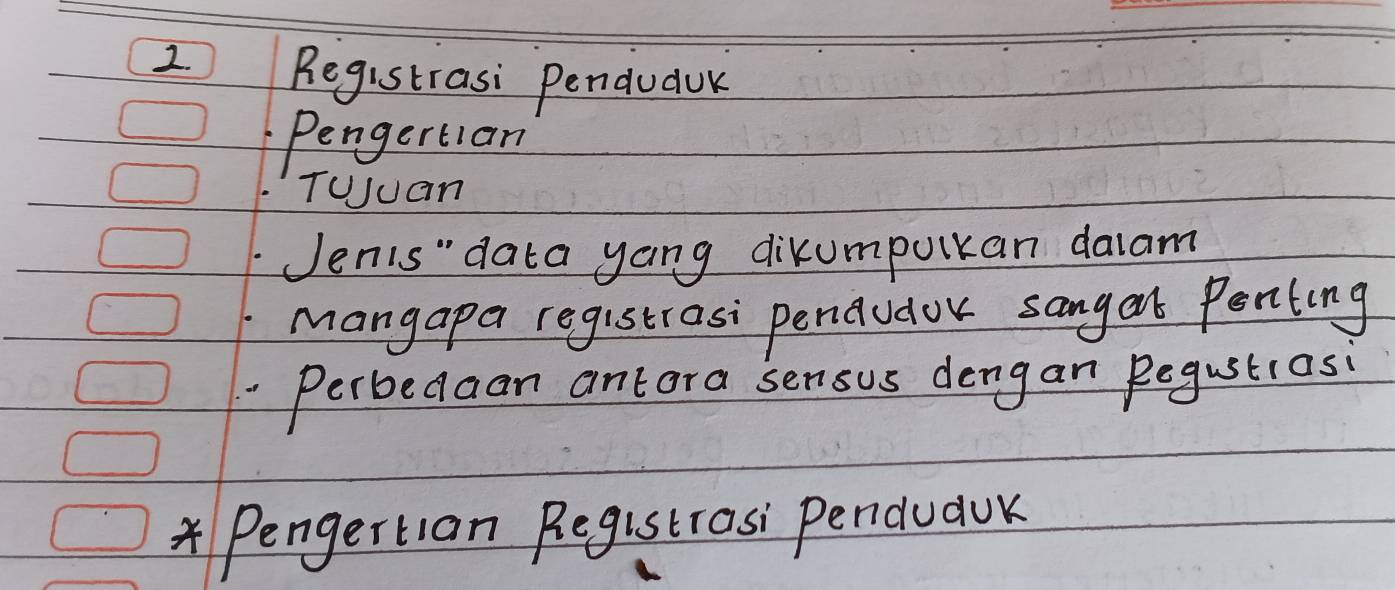 2. Registrasi Penduduk
· Pengertian
· Tujuan
· Jenis" data yang dikumpulkan dalam
· Mangapa registrasi penduduk sangat Penting
· Perbedaan antara sensus dengan Regustrasi
* Pengertian Registrasi Penduduk